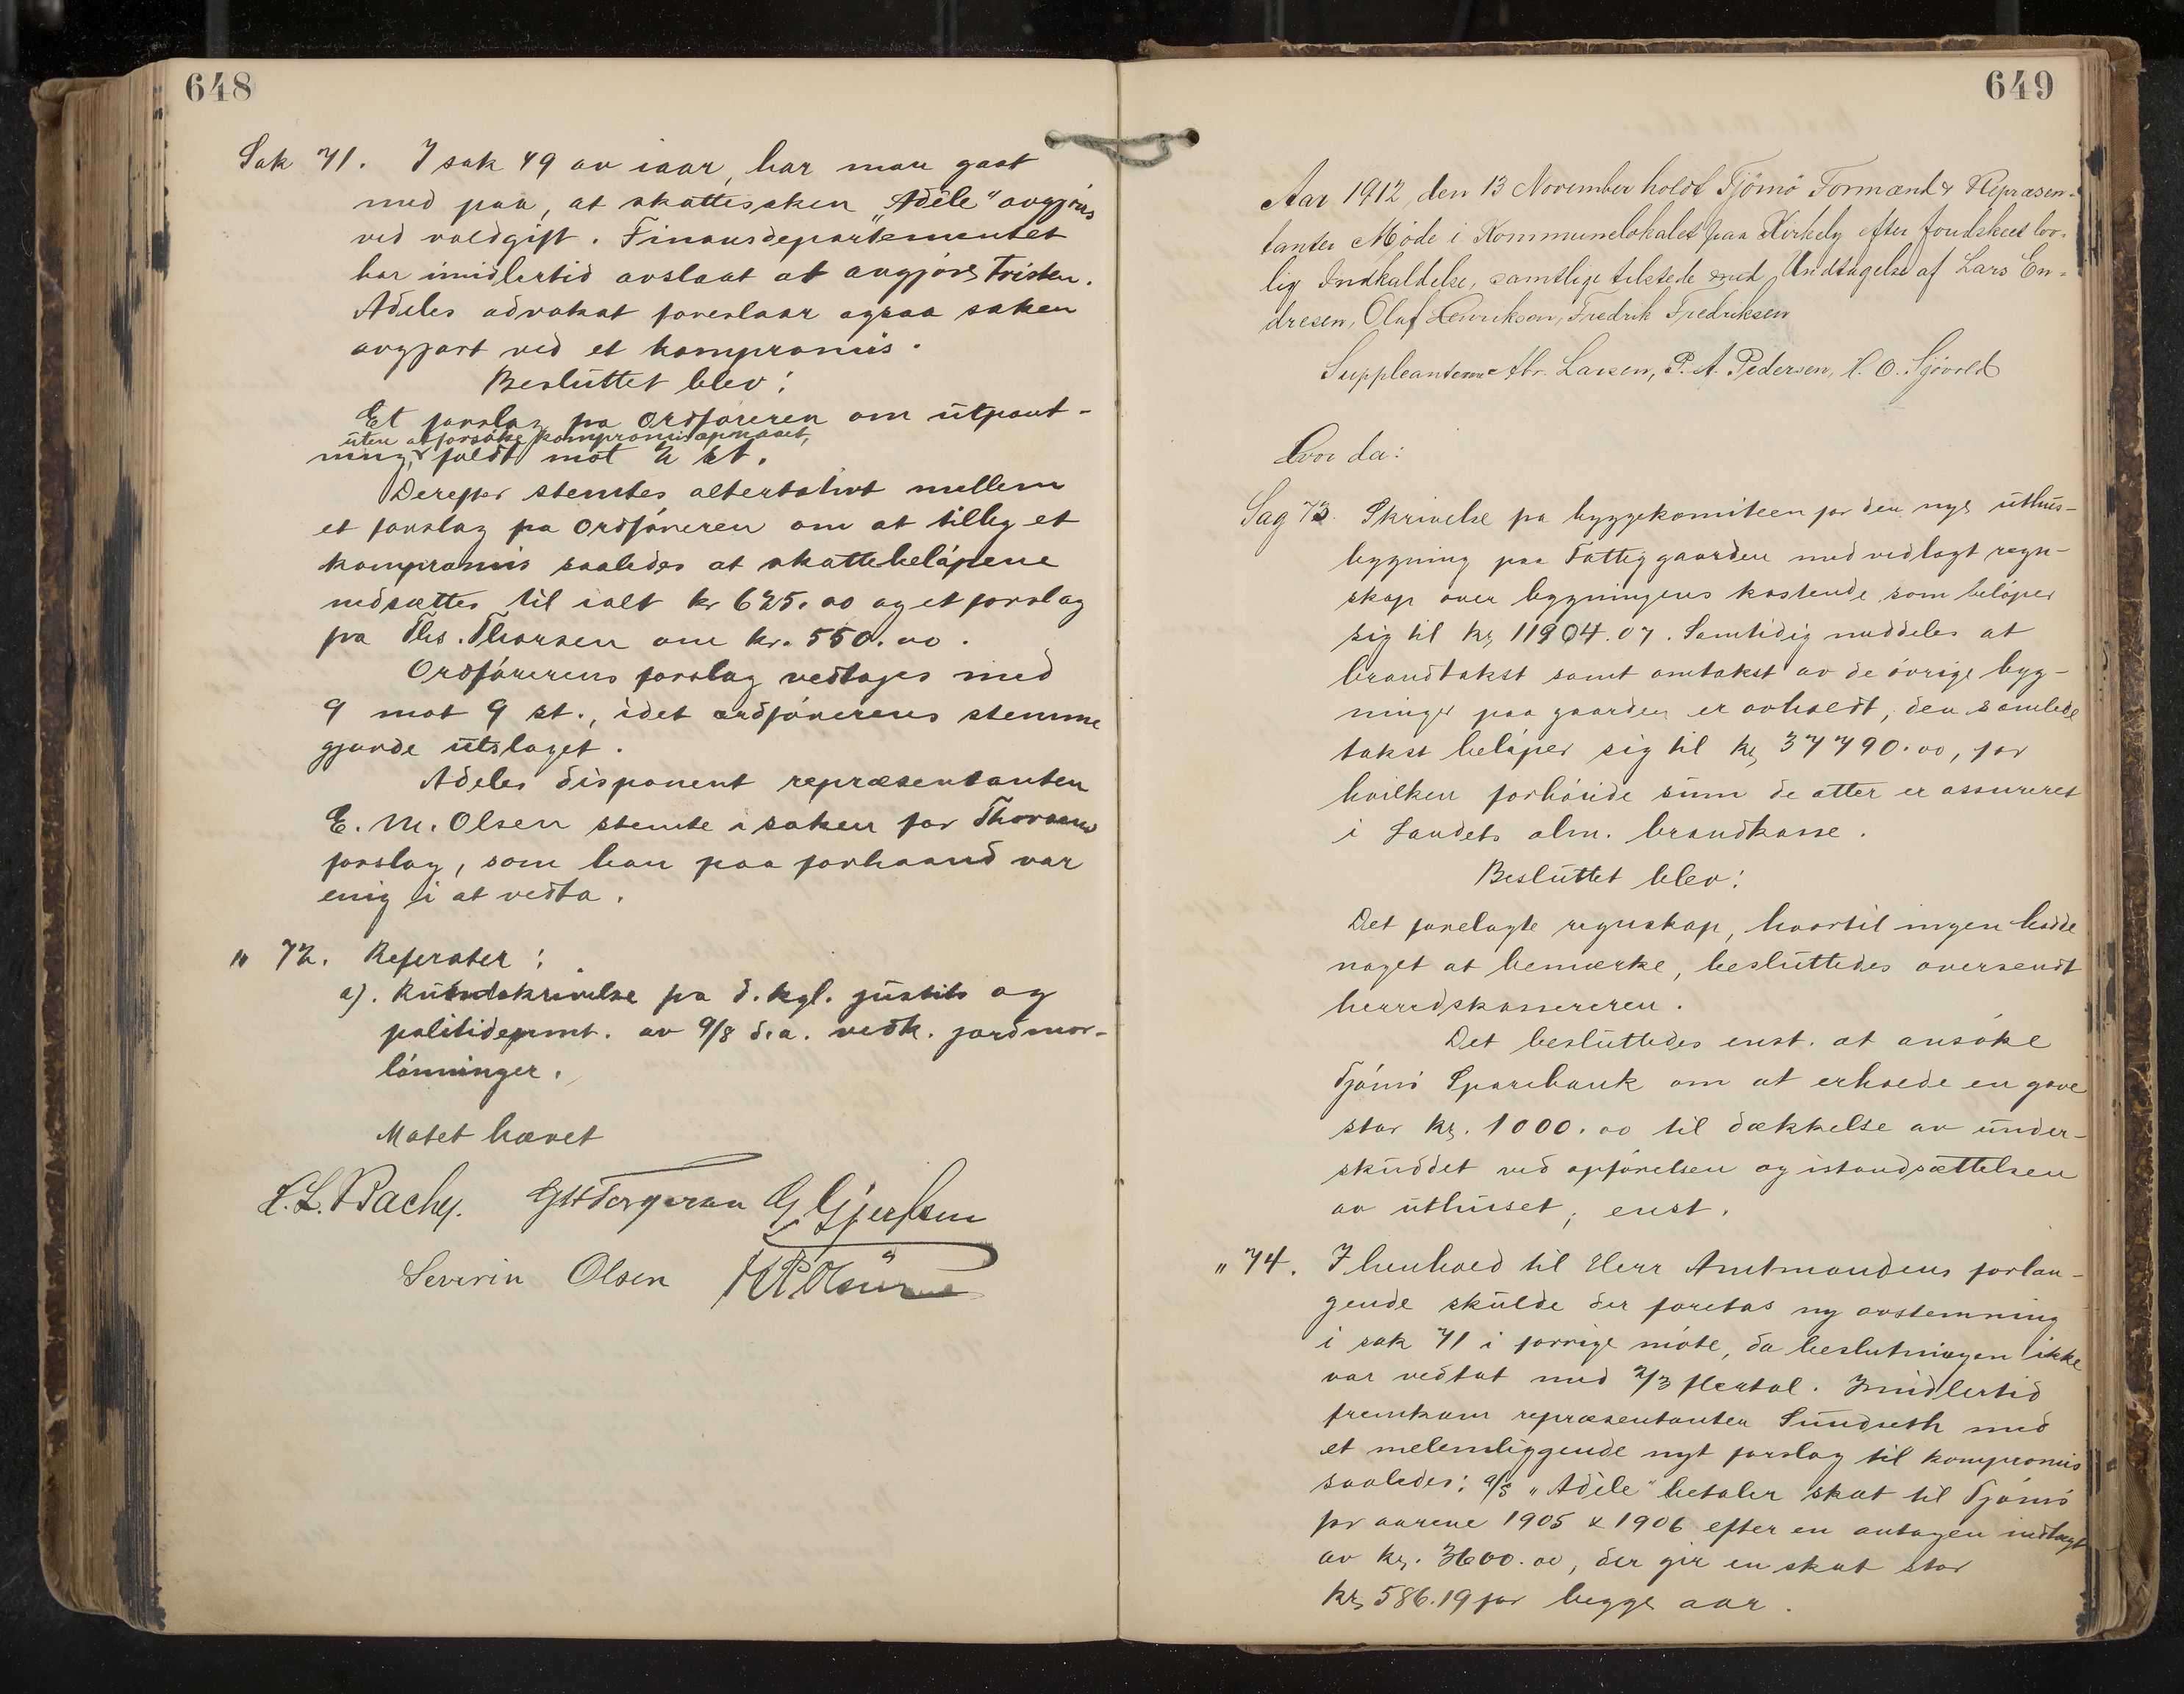 648
Sak 71. I sak 49 av iaar, har man gaat
med paa, at skattesaken "Adèle" avgjøres
ved voldgift. Finansdepartementet
har imidlertid avslaat at avgjøre tvisten.
Adeles advokat foreslaar ogsaa saken
avgjort ved et kompromis.
Besluttet blev:
Et forslag fra Ordføreren om utpant-
uten at forsøke kompromis opnaaet,
ning, faldt mot 2 st.
Derefter stemtes alternativt mellem
et forslag fra Ordføreren om at tillyg et
kompromis saaledes at skattebeløpene
nedsættes til ialt kr 625.00 og et forslag
fra Ths. Thorsen om kr. 550.00.
Ordførerens forslag vedtages med
9 mot 9 st., idet ordførerens stemme
gjorde utslaget.
Adeles disponent repræsentanten
E. M. Olsen stemte i saken for Thorsens
forslag, som han paa forhaand var
enig i at vedta.
" 72. Referater:
a). Rundskrivelse fra d. kgl. justits og
politidepmt. av 9/8 d.a. vedk. jordmor-
lønninger.
Møtet hævet
L. L. Bache. G Gjertsen
Severin Olsen
649
Aar 1912, den 13 November holdt Tjømø Formænd & Repræsen-
tanter Møde i Kommunelokalet paa Kirkely efter foudskeet lov-
lig Indkaldelse, samtlige tilstede med Undtagelse af Lars En-
dresen, Oluf Henriksen, Fredrik Fredriksen
Suppleanterne Abr. Larsen, P. A. Pedersen, H. O. Sjövold
Hvor da:
Sag 73. Skrivelse fra byggekomiteen for den nye uthus-
bygning paa Fattiggaarden med vedlagt regn-
skap over bygningens kostende som beløper
sig til kr 11904.07. Samtidig meddeles at
brandtakst samt omtakst av de øvrige byg-
ninger paa gaarden er avholdt, den samlede
takst beløper sig til kr 37790.00, for
hvilken forhøiede sum de atter er assureret
i Landets alm. brandkasse.
Besluttet blev:
Det forelagte regnskap, hvortil ingen hadde
noget at bemærke, besluttedes oversendt
herredskassereren.
Det besluttedes enst. at ansøke
Tjømø Sparebank om at erholde en gave
stor kr. 1000.00 til dækkelse av under-
skuddet ved opførelsen og istandsættelsen
av uthuset, enst.
" 74. I henhold til Herr Amtmandens forlan-
gende skulde der foretas ny avstemning
i sak 71 i forrige møte, da beslutningen ikke
var vedtat med 2/3 flertal. Imidlertid
fremkom repræsentanten Sundseth med
et melemliggende nyt forslag til kompromis
saaledes: a/s "Adèle" betaler skat til Tjømø
for aarene 1905 & 1906 efter en antagen indtægt
av kr. 3600.00, der gir en skat stor
kr 586.19 for begge aar.